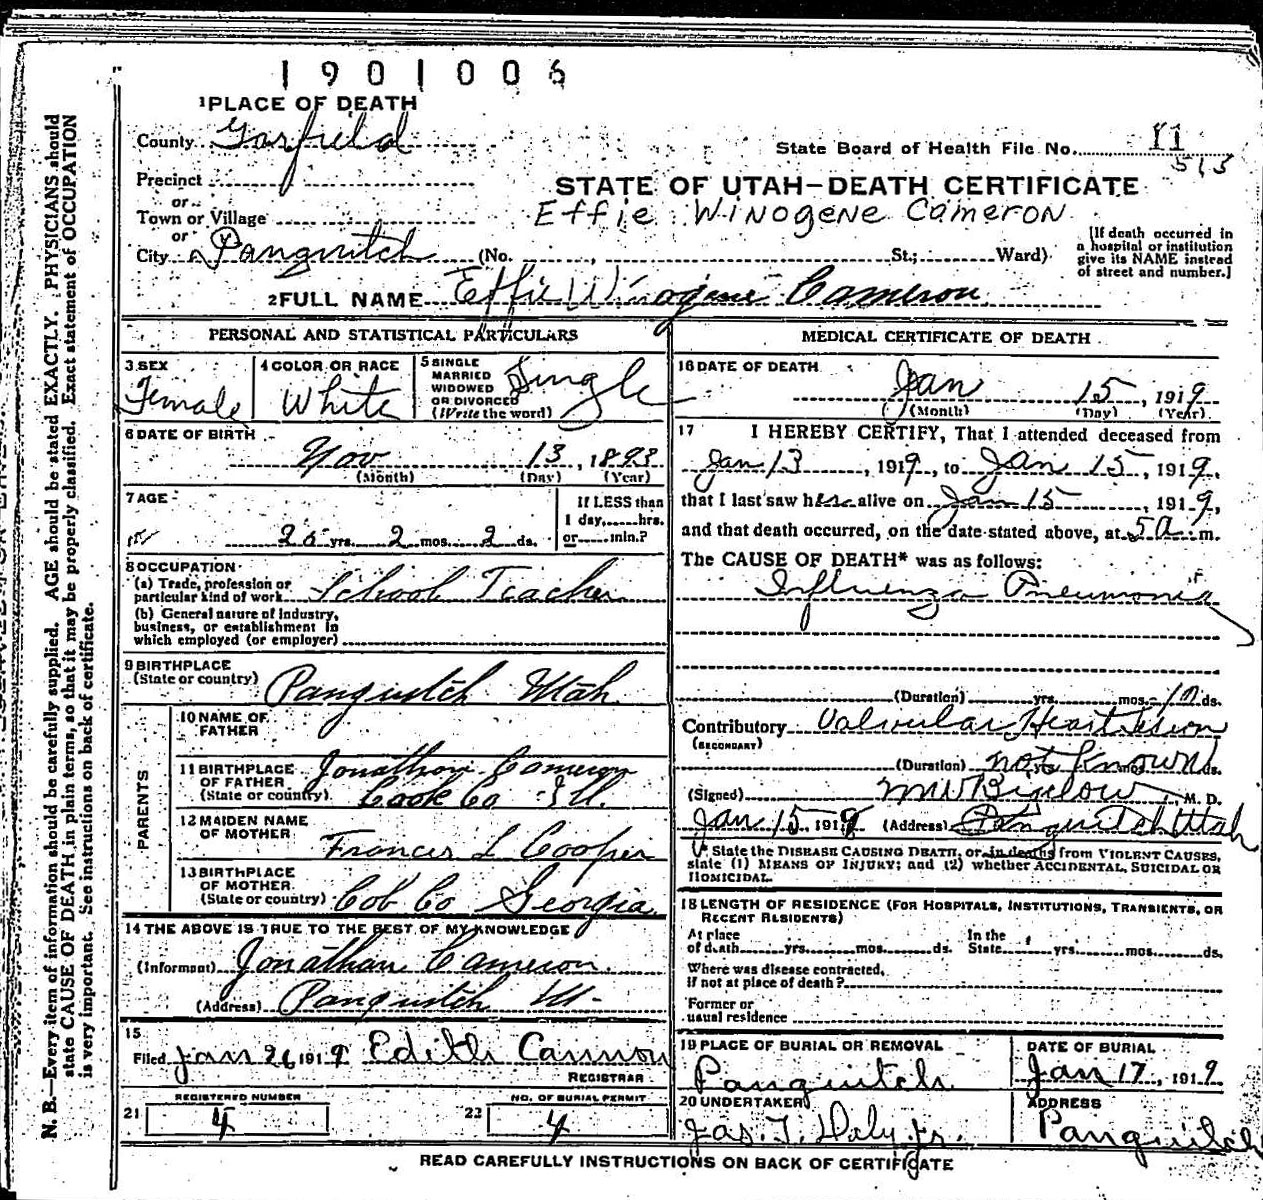 1901006
1 PLACE OF DEATH
County Garfield
State Board of Health File No. 11
513
Precinct
or
STATE OF UTAH—DEATH CERTIFICATE
Town or Village
Effie Winogene Cameron
or
City Panguitch (No. , St.; Ward)
[If death occurred in
a hospital or institution
give its NAME instead
of street and number.]
2 FULL NAME Effie Winogene Cameron
PERSONAL AND STATISTICAL PARTICULARS
3 SEX
Female
4 COLOR OR RACE
White
5 SINGLE
MARRIED
WIDOWED
OR DIVORCED
(Write the word)
Single
6 DATE OF BIRTH
Nov 13, 1893
(Month) (Day) (Year)
7 AGE
25 yrs. 2 mos. 2 ds.
If LESS than
1 day, hrs.
or min.?
8 OCCUPATION
(a) Trade, profession or
particular kind of work School Teacher
(b) General nature of industry,
business, or establishment in
which employed (or employer)
9 BIRTHPLACE
(State or country) Panguitch Utah
PARENTS
10 NAME OF
FATHER
Jonathan Cameron
11 BIRTHPLACE
OF FATHER
(State or country) Cook Co Ill.
12 MAIDEN NAME
OF MOTHER
Frances L Cooper
13 BIRTHPLACE
OF MOTHER
(State or country) Cob Co Georgia
14 THE ABOVE IS TRUE TO THE BEST OF MY KNOWLEDGE
(Informant) Jonathan Cameron
(Address) Panguitch Ut.
15
Filed Jan 26 1919 Edith Cannon
REGISTRAR
REGISTERED NUMBER
21 4
NO. OF BURIAL PERMIT
22 4
MEDICAL CERTIFICATE OF DEATH
16 DATE OF DEATH
Jan 15, 1919
(Month) (Day) (Year)
17 I HEREBY CERTIFY, That I attended deceased from
Jan 13, 1919, to Jan 15, 1919,
that I last saw her alive on Jan 15, 1919,
and that death occurred, on the date stated above, at 5 a. m.
The CAUSE OF DEATH* was as follows:
Influenza Pneumonia
(Duration) yrs. mos. 10 ds.
Contributory Valvular Heart Lesion
(SECONDARY)
(Duration) not known ds.
(Signed) M. D.
Jan 15 1919 (Address) Panguitch Utah
* State the DISEASE CAUSING DEATH, or in deaths from VIOLENT CAUSES,
state (1) MEANS OF INJURY; and (2) whether ACCIDENTAL, SUICIDAL OR
HOMICIDAL.
18 LENGTH OF RESIDENCE (FOR HOSPITALS, INSTITUTIONS, TRANSIENTS, OR
RECENT RESIDENTS)
At place
of death yrs. mos. ds.
In the
State yrs. mos. ds.
Where was disease contracted,
if not at place of death?
Former or
usual residence
19 PLACE OF BURIAL OR REMOVAL
Panguitch
DATE OF BURIAL
Jan 17, 1919
20 UNDERTAKER
Jas. T. Daly Jr.
ADDRESS
Panguitch
READ CAREFULLY INSTRUCTIONS ON BACK OF CERTIFICATE
N. B.—Every item of information should be carefully supplied. AGE should be stated EXACTLY. PHYSICIANS should
state CAUSE OF DEATH in plain terms, so that it may be properly classified. Exact statement of OCCUPATION
is very important. See instructions on back of certificate.